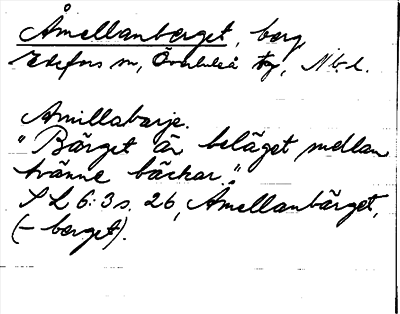 Åmellanberget, berg,
Edefors sn, Överluleå tg, Nb. l.
Amillabarje.
"Bärget är beläget mellan
tvänne bäckar."
SL 6:3 s. 26, Åmellanbärget,
(- berget).